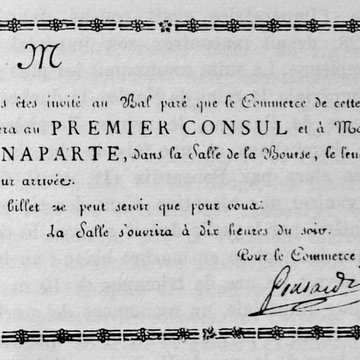 M
s êtes invité au Bal paré que le Commerce de cette
era au PREMIER CONSUL et à M
NAPARTE, dans la Salle de la Bourse, le len
ur arrivée.
billet ne peut servir que pour vous.
La Salle s'ouvrira à dix heures du soir.
Pour le Commerce